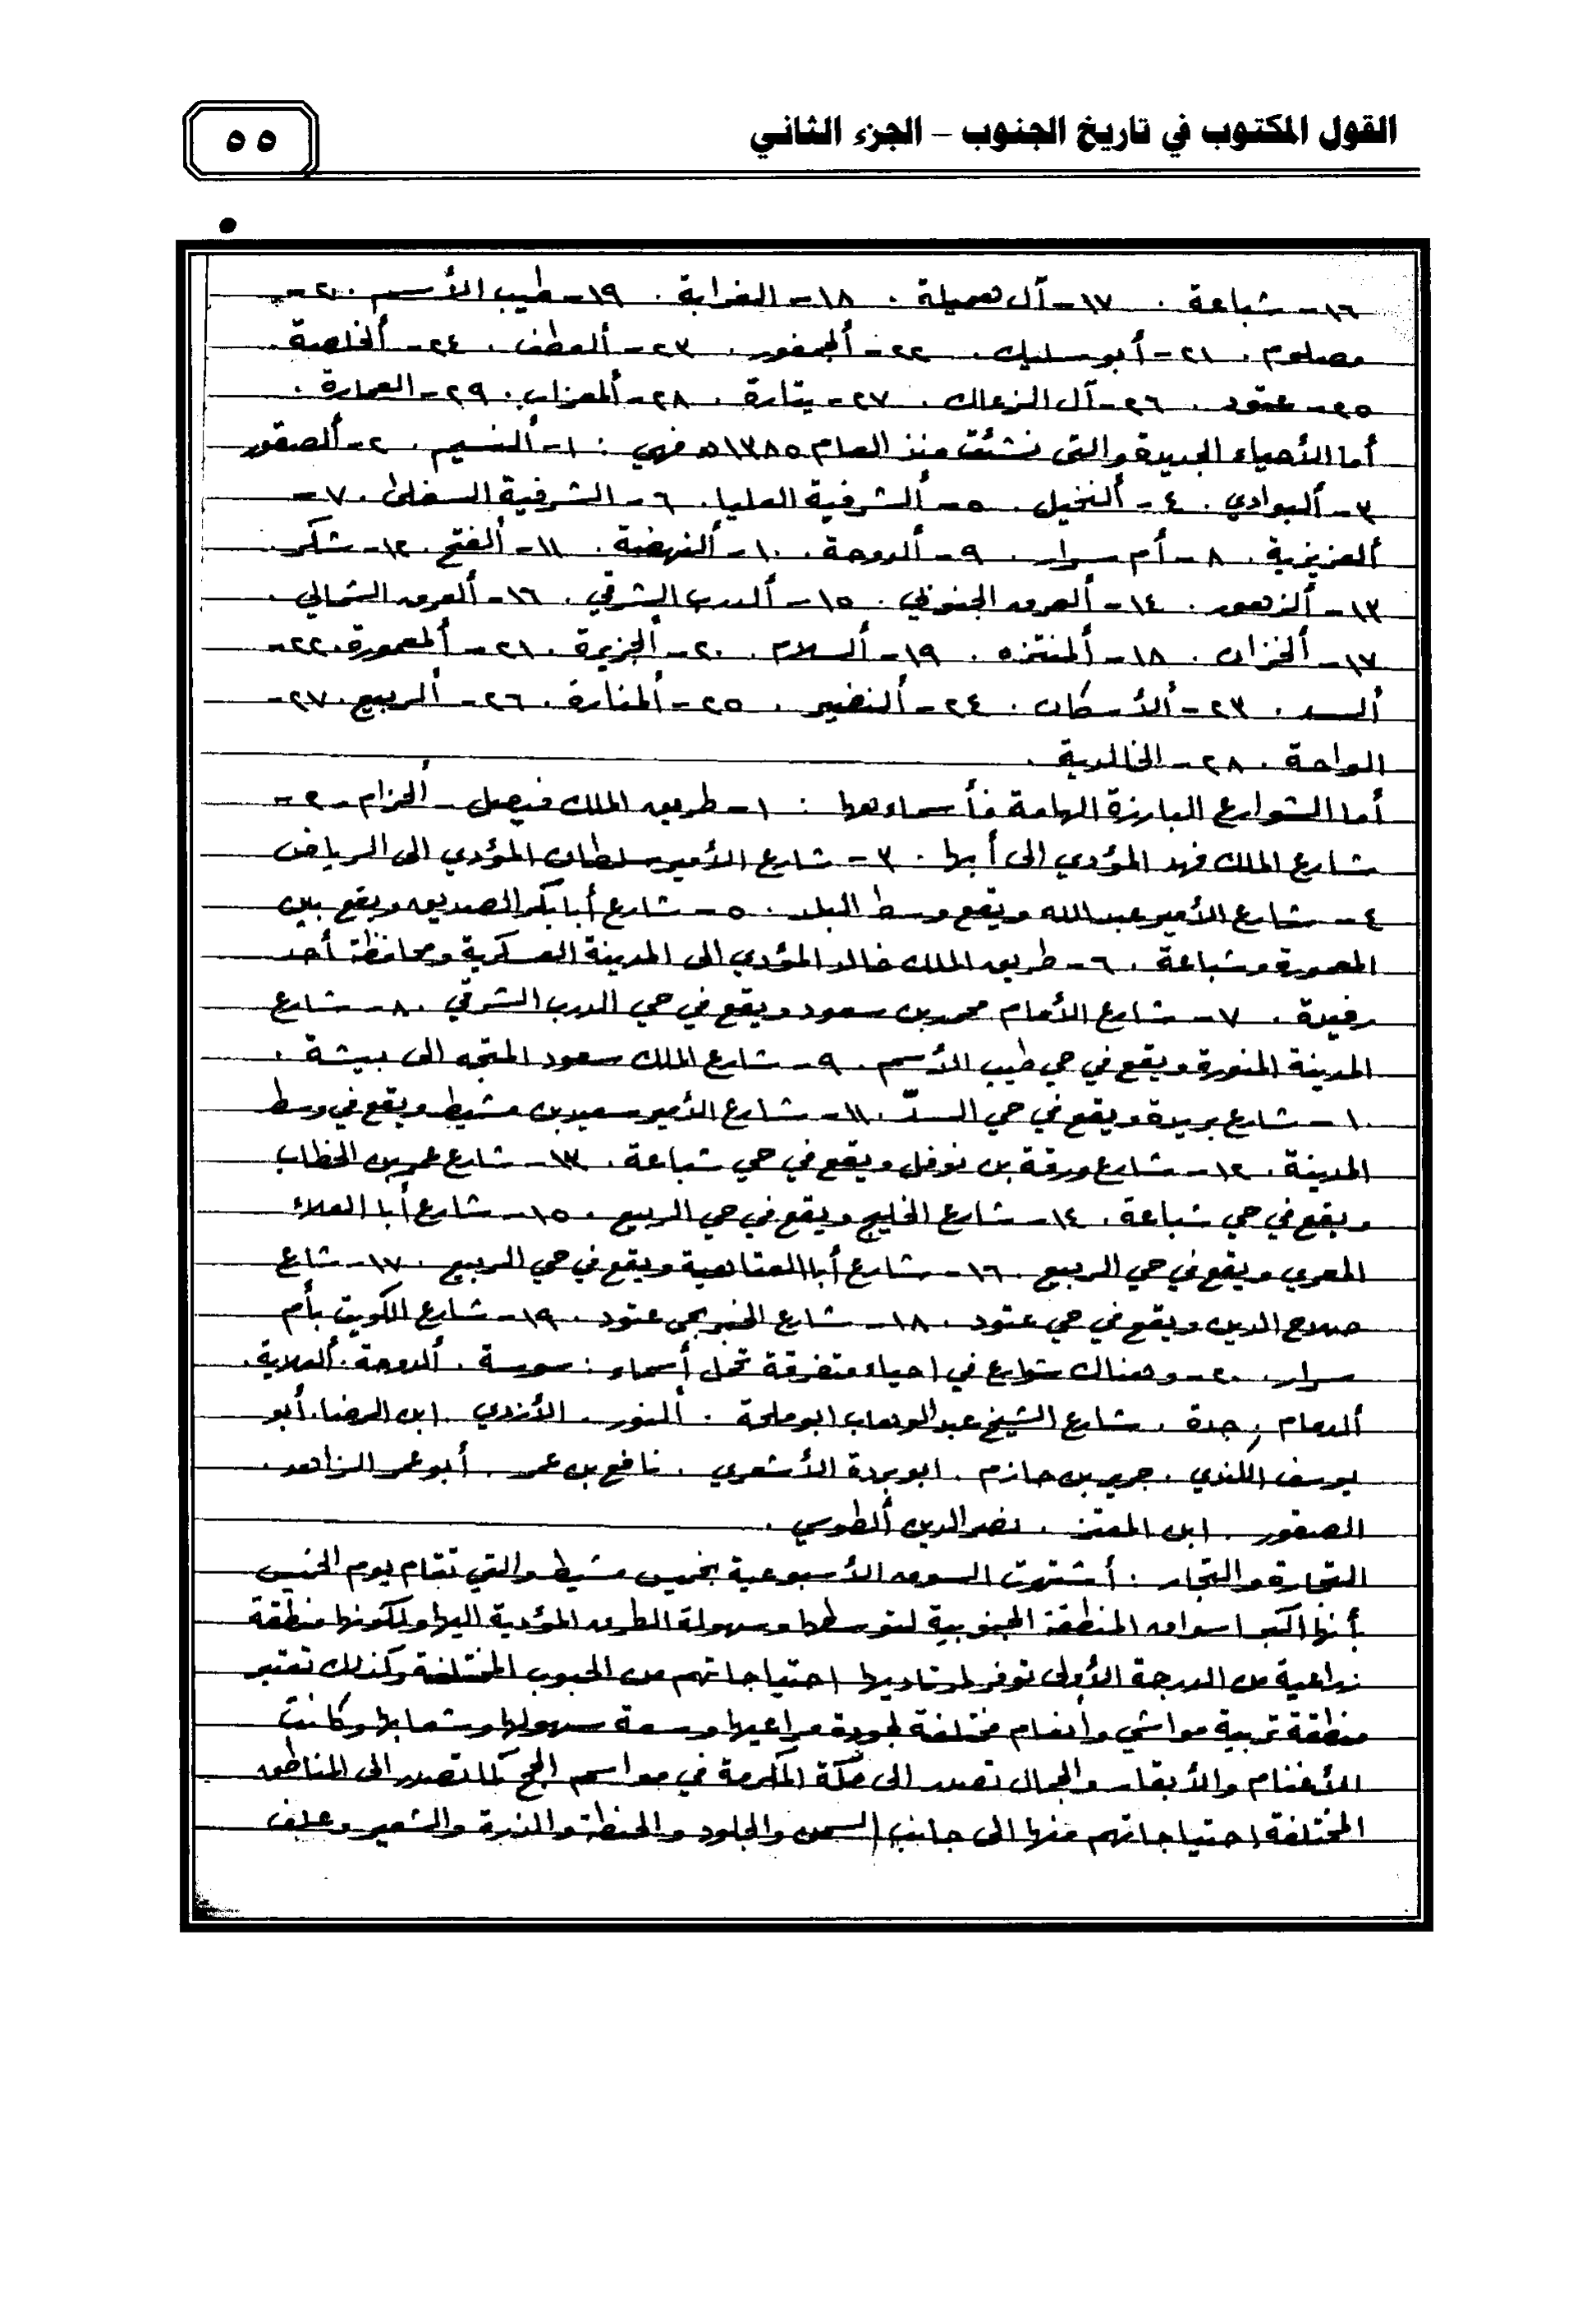 القول المكتوب في تاريخ الجنوب – الجزء الثاني
٥٥
١٦- شباعة . ١٧- آل هميلة . ١٨- الغرابة . ١٩- طيب الأسم . ٢٠-
مصلوم . ٢١- أبو سليك . ٢٢- ألجمفور . ٢٣- ألعطف . ٢٤- ألخلصة .
٢٥- عتود . ٢٦- آل الزعلاك . ٢٧- يتارة . ٢٨- ألمعزاب . ٢٩- العمارة .
أما الأحياء الجديدة والتي نشئت منذ العام ١٣٨٥هـ فهي : ١- ألنسيم . ٢- ألصقور
٣- ألبوادي . ٤- ألنخيل . ٥- ألشرفية العليا . ٦- الشرفية السفلى . ٧-
ألعزيزية . ٨- أم سرار . ٩- ألدوحة . ١٠- ألنهضة . ١١- ألفتح . ١٢- شكر .
١٣- ألزهور . ١٤- ألعرق الجنوبي . ١٥- ألدرب الشرقي . ١٦- ألعرق الشمالي .
١٧- ألخزان . ١٨- ألمنتزه . ١٩- ألسلام . ٢٠- ألجزيرة . ٢١- ألمعمورة . ٢٢-
ألسد . ٢٣- ألأسكان . ٢٤- ألنضير . ٢٥- ألمنارة . ٢٦- ألربيع . ٢٧-
الواحة . ٢٨- الخالدية .
أما الشوارع البارزة الهامة فأسماءها : ١- طريق الملك فيصل - ألحزام . ٢-
شارع الملك فهد المؤدي الى أبها . ٣- شارع الأمير سلطان المؤدي الى الرياض
٤- شارع الأمير عبد الله ويقع وسط البلد . ٥- شارع أبا بكر الصديق ويقع بين
المعمورة وشباعة . ٦- طريق الملك خالد المؤدي الى المدينة العسكرية ومحافظة أحد
رفيدة . ٧- شارع الأمام محمد بن سعود ويقع في حي الدرب الشرقي . ٨- شارع
المدينة المنورة ويقع في حي طيب الأسم . ٩- شارع الملك سعود المتجه الى بيشة .
١٠- شارع بريدة ويقع في حي السدّ . ١١- شارع الأمير سعيد بن مشيط ويقع في وسط
المدينة . ١٢- شارع ورقة بن نوفل ويقع في حي شباعة . ١٣- شارع عمر بن الخطاب
ويقع في حي شباعة . ١٤- شارع الخليج ويقع في حي الربيع . ١٥- شارع أبا العلاء
المعري ويقع في حي الربيع . ١٦- شارع أبا العتاهية ويقع في حي الربيع . ١٧- شاع
صلاح الدين ويقع في حي عتود . ١٨- شارع الخبر بحي عتود . ١٩- شارع الكويت بأم
سرار . ٢٠- وهناك شوارع في احياء متفرقة تحمل أسماء : سوسة . ألدوحة . ألعلاية .
ألدمام , جدة . شارع الشيخ عبد الوهاب ابو ملحة . ألنور . الأزدي . ابن الرضا . أبو
يوسف الكندي . جرير بن حازم . ابو بردة الأشعري . نافع بن عمر . أبو عمر الزاهد .
الصقور . ابن المعتز . نصر الدين ألطوسي .
التجارة والتجار : أشتهرت السوق الأسبوعية بخميس مشيط والتي تقام يوم الخميس
بأنها اكبر اسواق المنطقة الجنوبية لتوسطها وسهولة الطرق المؤدية اليها ولكونها منطقة
زراعية من الدرجة الأولى توفر لمرتاديها احتياجاتهم من الحبوب المختلفة وكذلك تعتبر
منطقة تربية مواشي وأنعام مختلفة لجودة مراعيها وسعة سهولها وشعابها وكانت
الأغنام والأبقار والجمال تصدر الى مكة المكرمة في مواسم الحج كما تصدر الى المناطق
المختلفة احتياجاتهم منها الى جانب السمن والجلود والحنطة والذرة والشعير وعلف